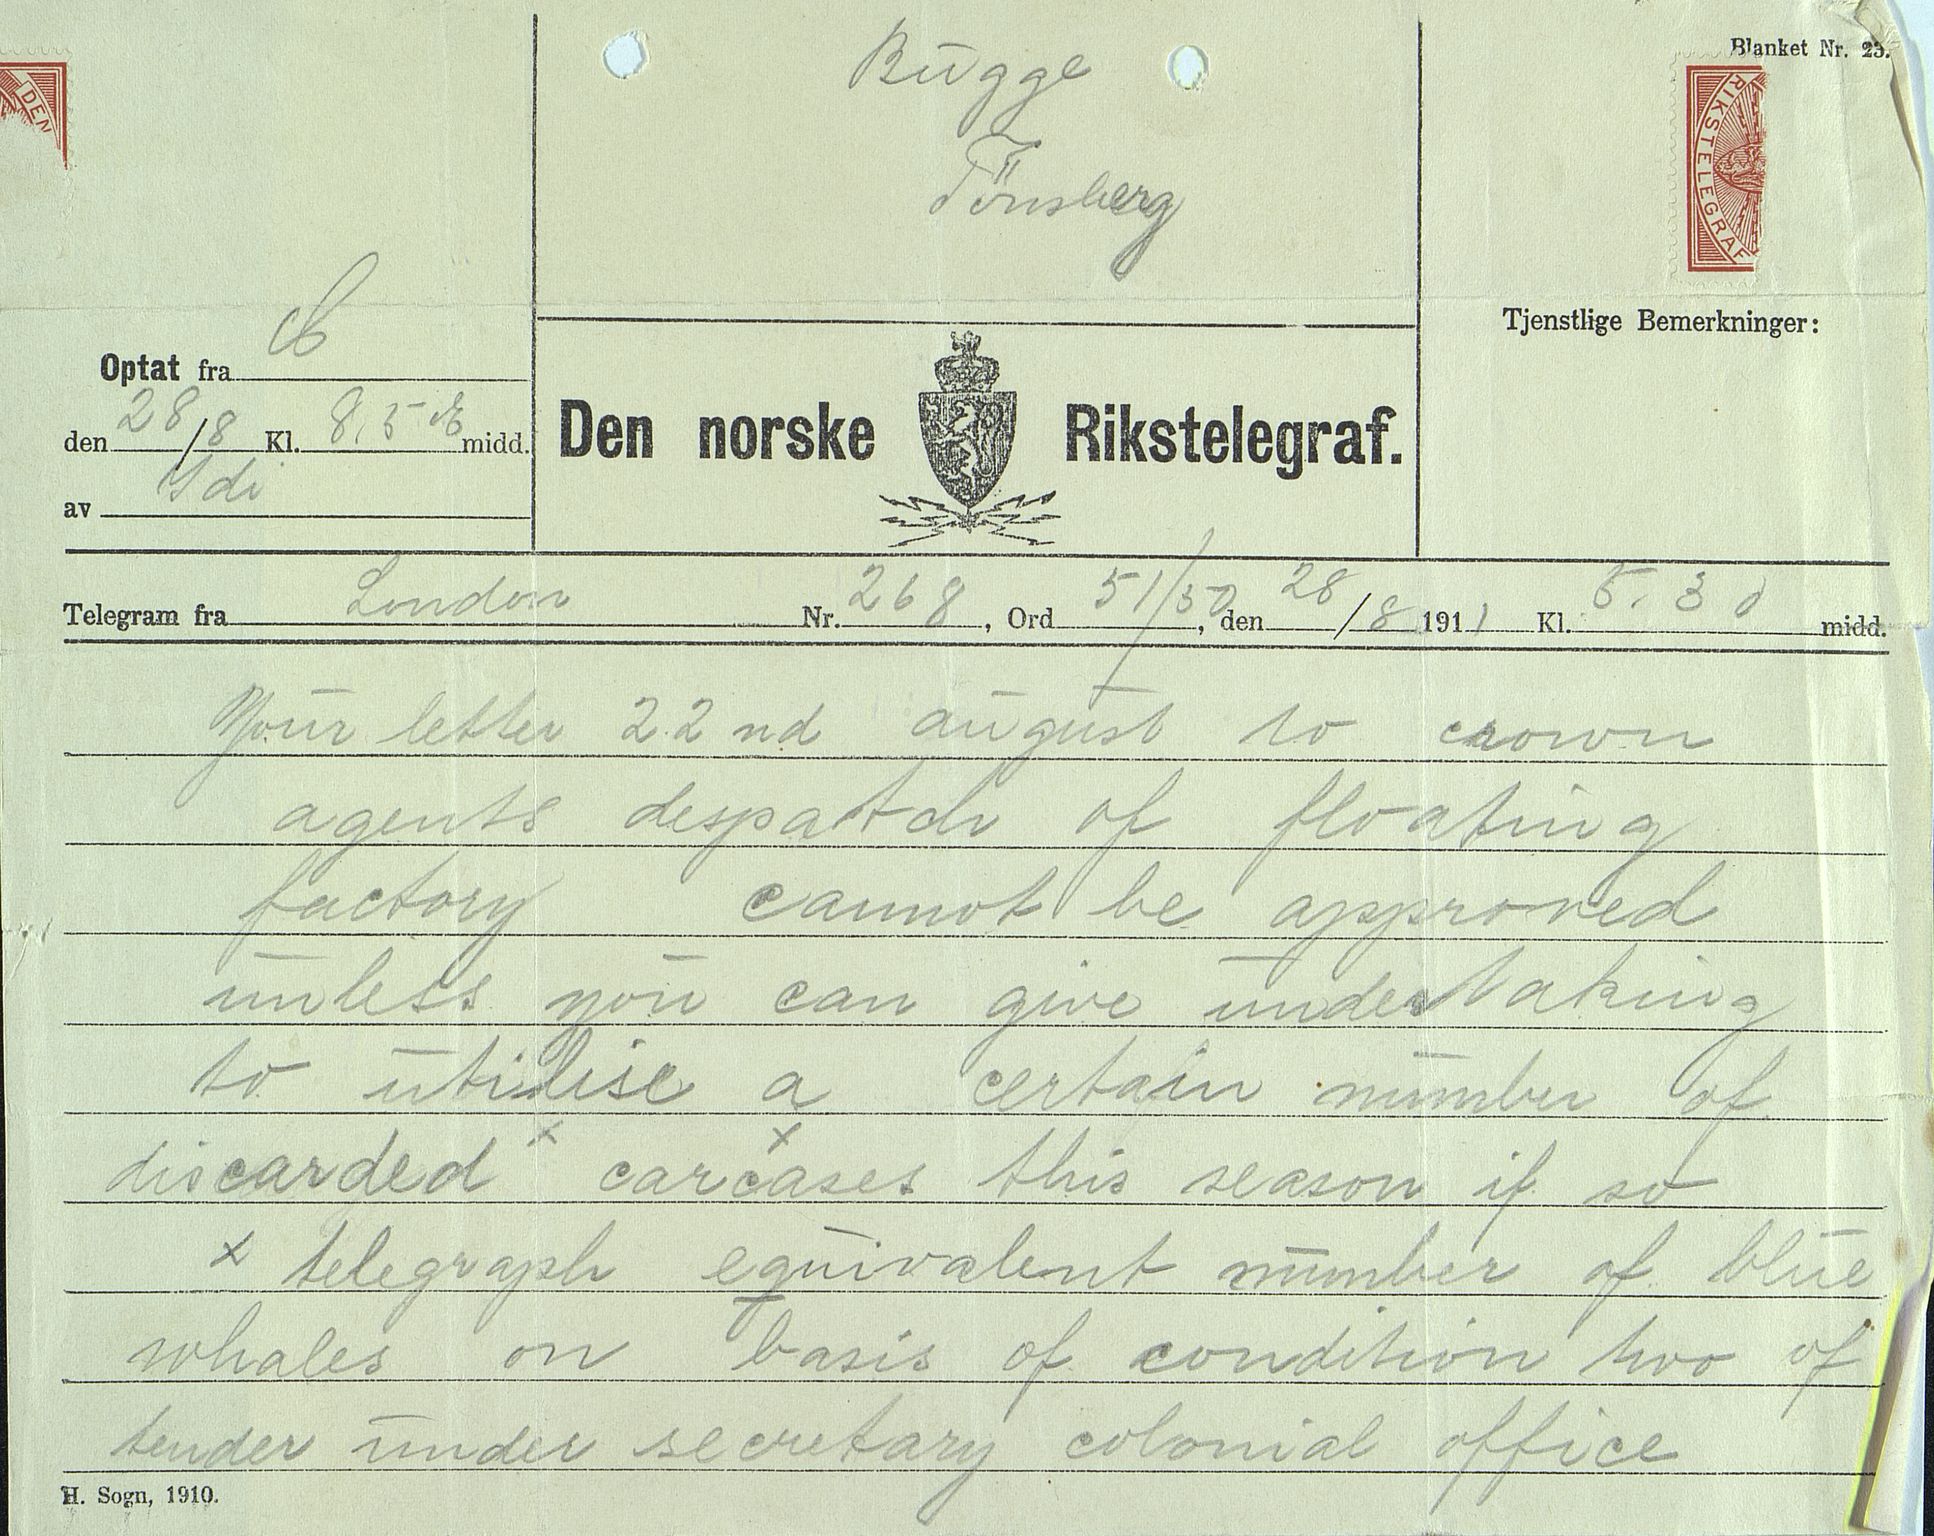 Bugge
Tönsberg
Blanket Nr. 23.
DEN
RIKSTELEGRAF
Tjenstlige Bemerkninger:
Optat fra
den 28/8 Kl. 8.5 midd.
av
Den norske Rikstelegraf.
Telegram fra London Nr. 268, Ord 51/50, den 28/8 1911 Kl. 5.30 midd.
Your letter 22nd august to crown
agents despatch of floating
factory cannot be approved
unless you can give undertaking
to utilise a certain number of
discarded x carcases x this season if so
x telegraph equivalent number of blue
whales on basis of condition two of
tender under secretary colonial office
H. Sogn, 1910.